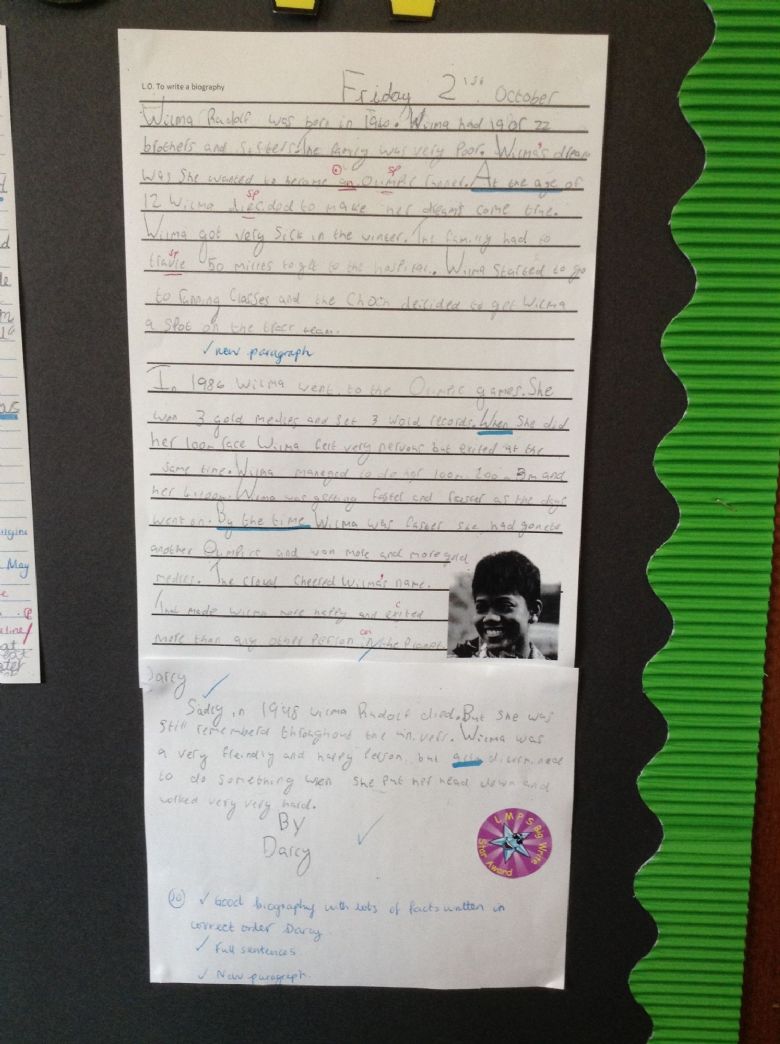 L.O. To write a biography
Friday 2nd October
Wilma Rudolf was born in 1940. Wilma had 19 or 22
brothers and sisters. The family was very Poor. Wilma's dream
was She wanted to become an Olimpic runner. At the age of
sp
12 Wilma diesided to make her dreams come true.
sp
Wilma got very Sick in the winter. The family had to
travle 50 milles to get to the hospital. Wilma started to go
sp
to running classes and the decided to get Wilma
a spot on the track team.
✓ new paragraph
In 1986 Wilma went to the Olimpic games. She
won 3 gold medles and set 3 wold records. When She did
her 100m race Wilma felt very nervous but exited at the
same time. Wilma managed to do her 100m and
her Wilma was getting faster and faster as the days
went on. By the time Wilma was faster she had gone to
another Olimpics and won more and more gold
medles. The croud cheered Wilma's name.
That made Wilma more happy and excited
more than any other Person on the Planet.
Darcy
✓
Sadly in Wilma Rudolf died. But She was
still rememberd throughout the univers. Wilma was
a very freindly and happy Person but also
to do something when she put her head down and
worked very very hard.
By
Darcy
✓
LMPS Big Write
Star Award
✓ Good biography with lots of facts written in
correct order Darcy.
✓ Full sentences
✓ New paragraph.
May